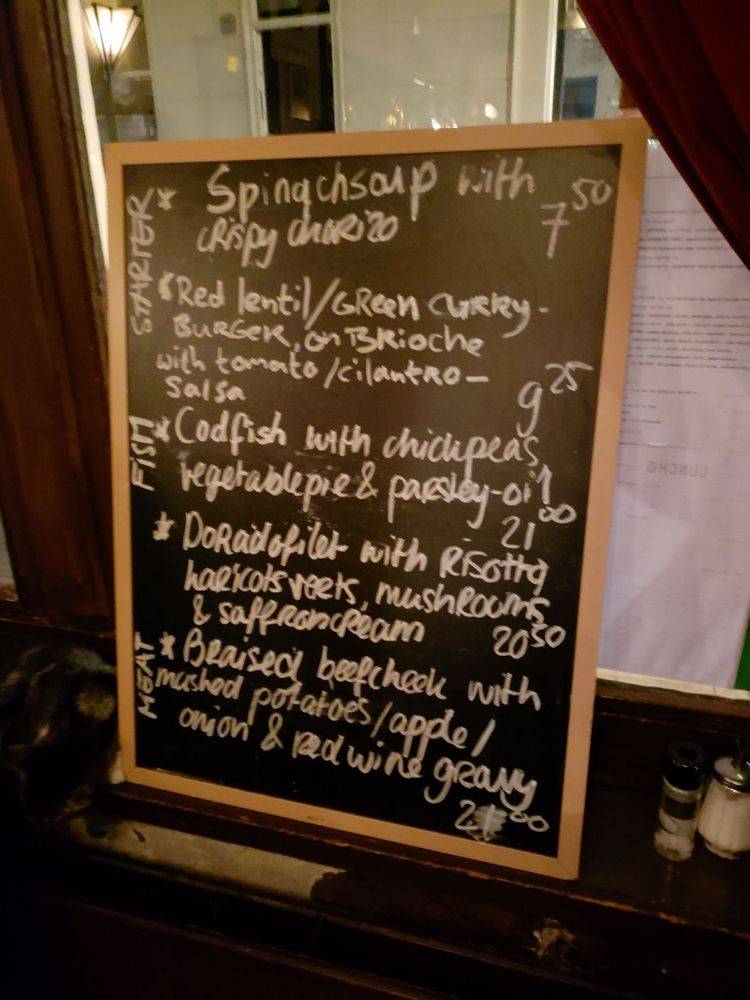 STARTER
* Spinachsoup with
crispy chorizo 7 50
* Red lentil/GReen curry-
BURGER, on BRioche
with tomato/cilantro-
salsa 9 25
FISH
* Codfish with chickpeas,
vegetablepie & parsley-oil
21 00
* Doradofilet with Risotto,
haricots verts, mushrooms
& saffroncream 20 50
MEAT
* Braised beefcheek with
mashed potatoes/apple/
onion & red wine gravy
21 00
LUNCH